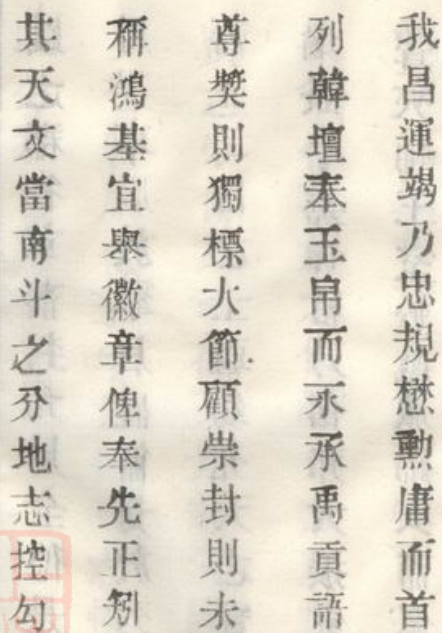 我昌運竭乃忠規懋勳庸而首
列韓壇奉玉帛而永承禹貢語
尊奬則獨標大節顧崇封則未
稱鴻基宜舉徽章俾奉先正矧
其天文當南斗之分地志控勾